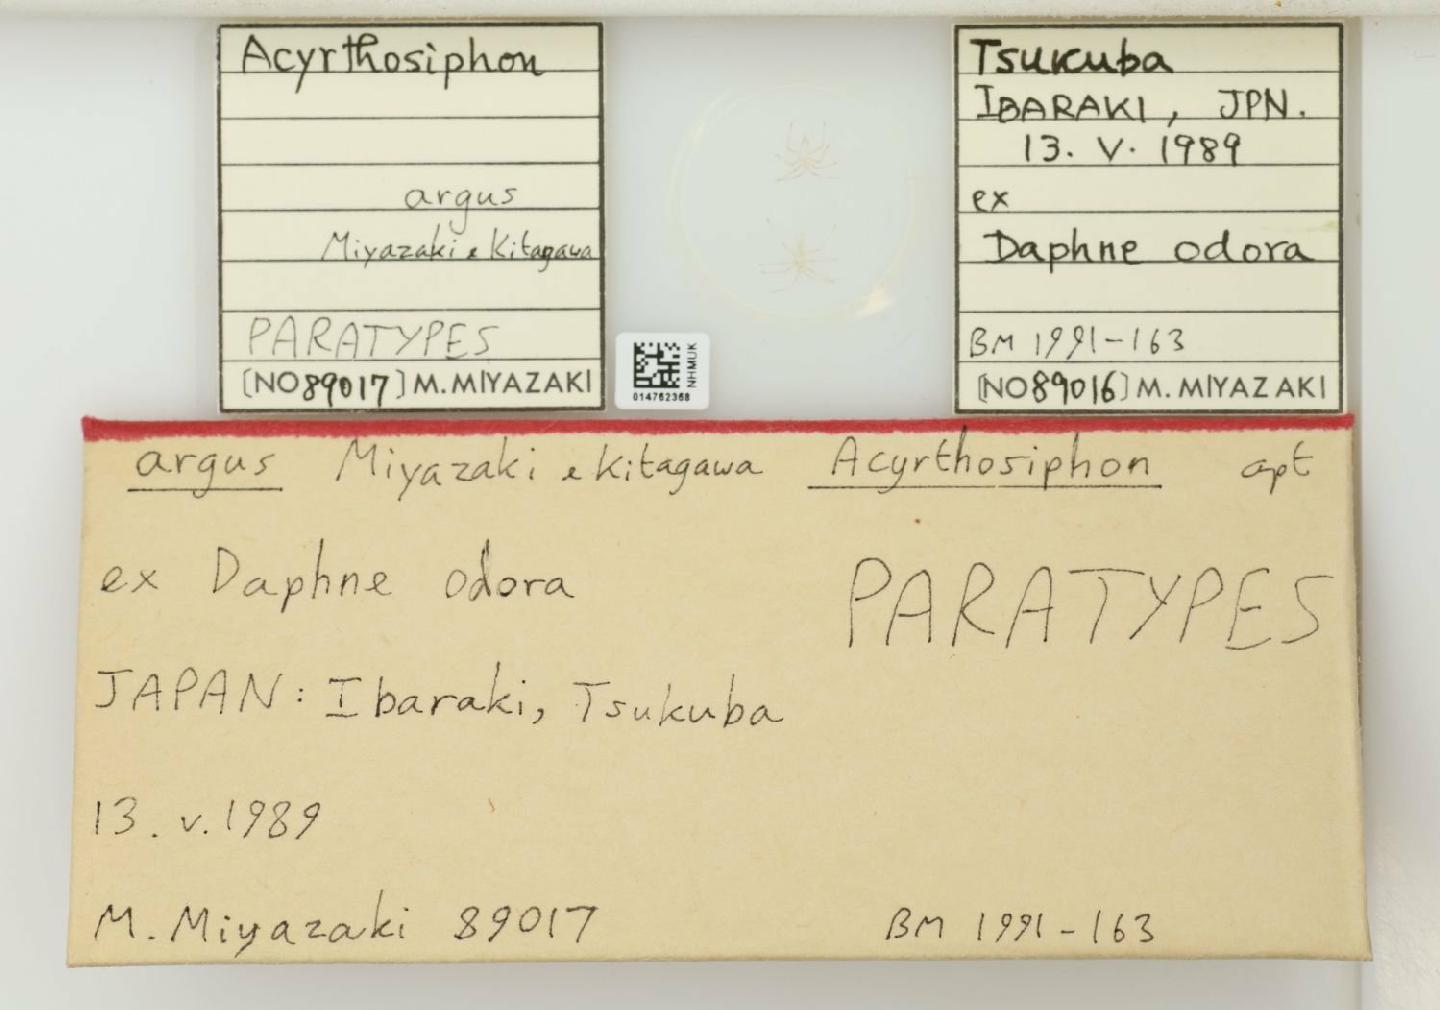 Acyrthosiphon
argus
Miyazaki & Kitagawa
PARATYPES
[NO 89017] M. MIYAZAKI
NHMUK
014762368
Tsukuba
IBARAKI, JPN.
13. V. 1989
ex
Daphne odora
BM 1991-163
[NO 89016] M. MIYAZAKI
argus Miyazaki & Kitagawa Acyrthosiphon apt
ex Daphne odora
PARATYPES
JAPAN: Ibaraki, Tsukuba
13. v. 1989
M. Miyazaki 89017 BM 1991-163